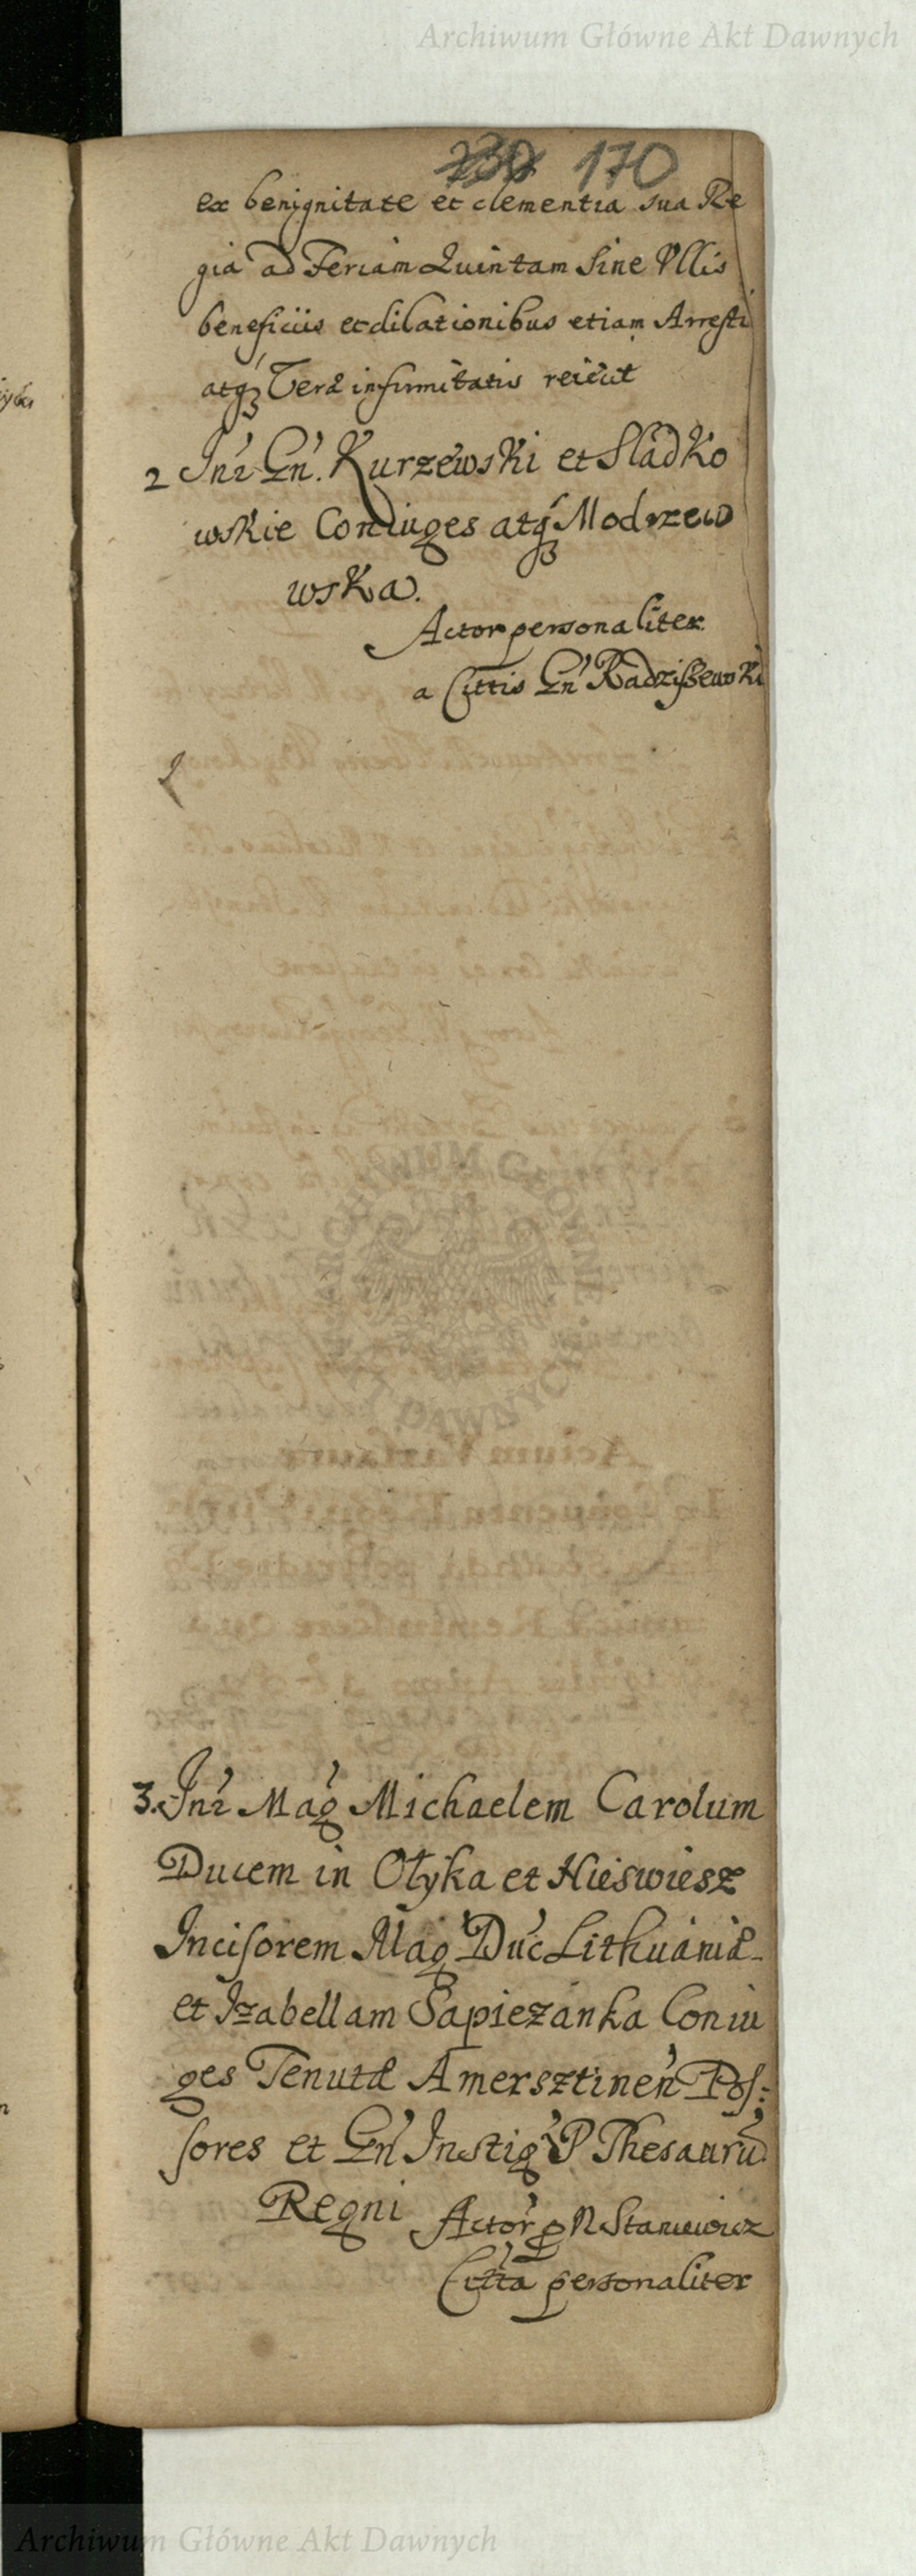 Archiwum Główne Akt Dawnych
230 170
ex benignitate et clementia sua Re
gia ad Feriam Quintam Sine Ullis
beneficiis et dilationibus etiam Arresti
atqꝫ Veræ infirmitatis reiicit
2 Inr Gn̄. Kurzewski et Sladko
wskie Coniuges atqꝫ Modrzew
wska.
Actor personaliter
a Cittis Gn̄ Radziszewski
3. Inr Mag Michaelem Carolum
Ducem in Ołyka et Nieswiesz
Incisorem Mag Duc Lithuaniæ
et Izabellam Sapiezanka Coniu
ges Tenutæ Amersztinen Pos:
sores et Gn̄ Instig P Thesauru
Regni Actor p N Staniewicz
Citta personaliter
ARCHIWUM GŁÓWNE AKT DAWNYCH
Archiwum Główne Akt Dawnych